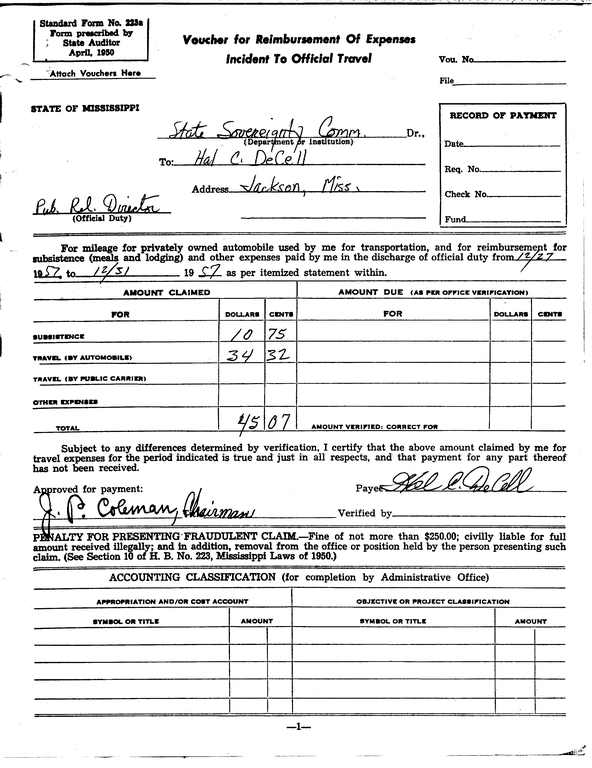 Standard Form No. 223a
Form prescribed by
State Auditor
April, 1950
Attach Vouchers Here
Voucher for Reimbursement Of Expenses
Incident To Official Travel
Vou. No.
File
STATE OF MISSISSIPPI
State Sovereignty Comm. Dr.,
(Department or Institution)
To: Hal C. DeCell
Address Jackson, Miss.
Pub. Rel. Director
(Official Duty)
RECORD OF PAYMENT
Date
Req. No.
Check No.
Fund
For mileage for privately owned automobile used by me for transportation, and for reimbursement for
subsistence (meals and lodging) and other expenses paid by me in the discharge of official duty from 12/27
1957 to 12/31 1957 as per itemized statement within.
AMOUNT CLAIMED AMOUNT DUE (AS PER OFFICE VERIFICATION)
FOR DOLLARS CENTS FOR DOLLARS CENTS
SUBSISTENCE 10 75
TRAVEL (BY AUTOMOBILE) 34 32
TRAVEL (BY PUBLIC CARRIER)
OTHER EXPENSES
TOTAL 45 07 AMOUNT VERIFIED: CORRECT FOR
Subject to any differences determined by verification, I certify that the above amount claimed by me for
travel expenses for the period indicated is true and just in all respects, and that payment for any part thereof
has not been received.
Approved for payment: Payee Hal C. DeCell
J. P. Coleman, Chairman Verified by
PENALTY FOR PRESENTING FRAUDULENT CLAIM.—Fine of not more than $250.00; civilly liable for full
amount received illegally; and in addition, removal from the office or position held by the person presenting such
claim. (See Section 10 of H. B. No. 223, Mississippi Laws of 1950.)
ACCOUNTING CLASSIFICATION (for completion by Administrative Office)
APPROPRIATION AND/OR COST ACCOUNT OBJECTIVE OR PROJECT CLASSIFICATION
SYMBOL OR TITLE AMOUNT SYMBOL OR TITLE AMOUNT
—1—